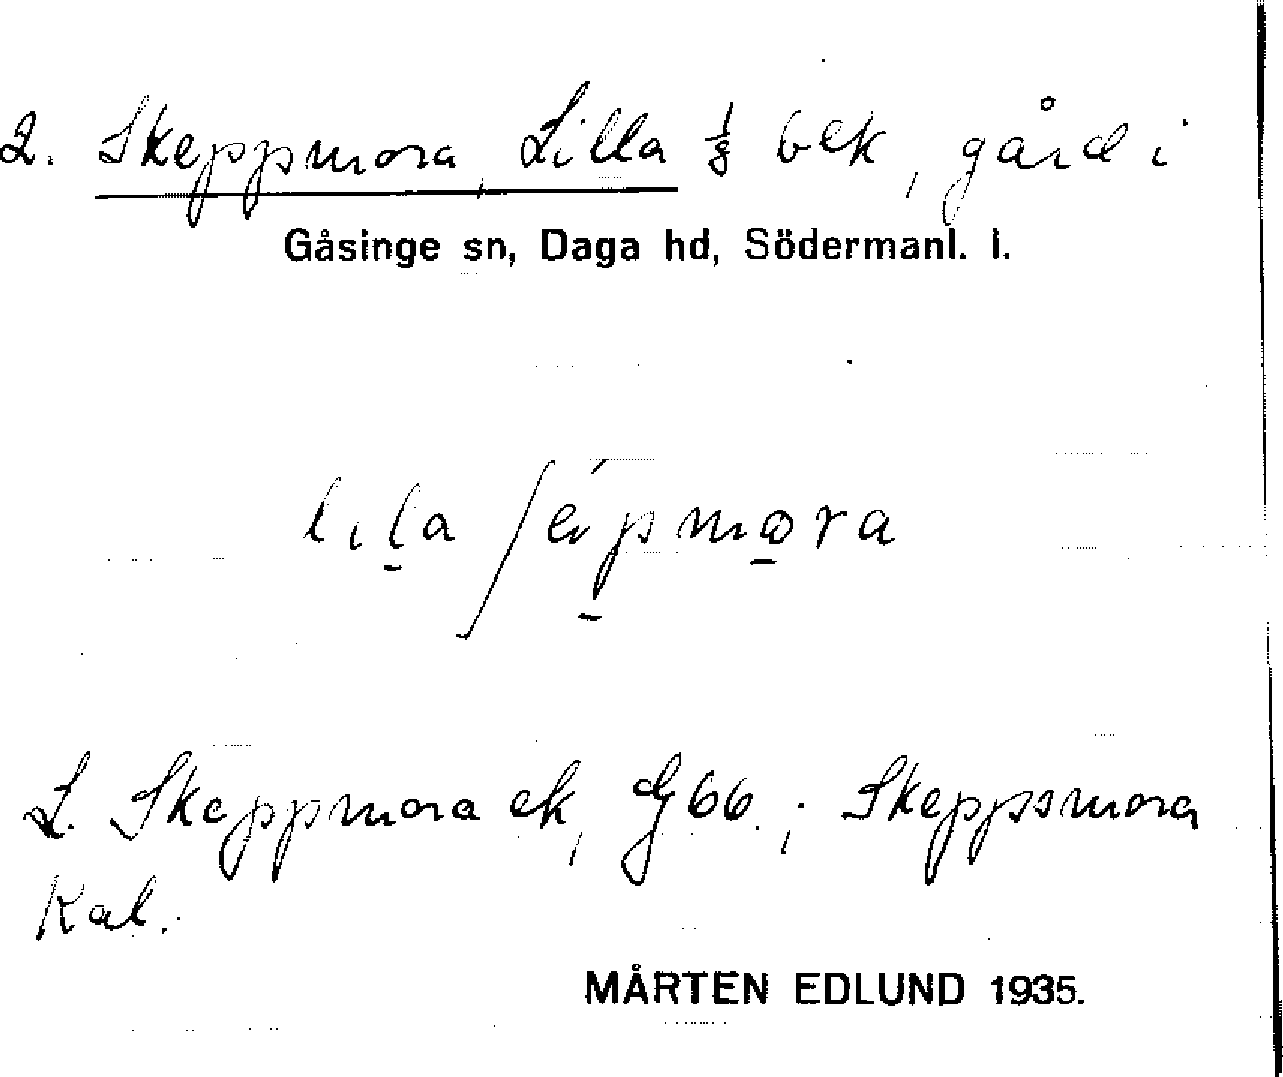 2. Skeppmora, Lilla ⅛ bek, gård i
Gåsinge sn, Daga hd, Södermanl. l.
lịla ʃépmora
L. Skeppmora ek, G66.; Skeppsmora
Kal.
MÅRTEN EDLUND 1935.